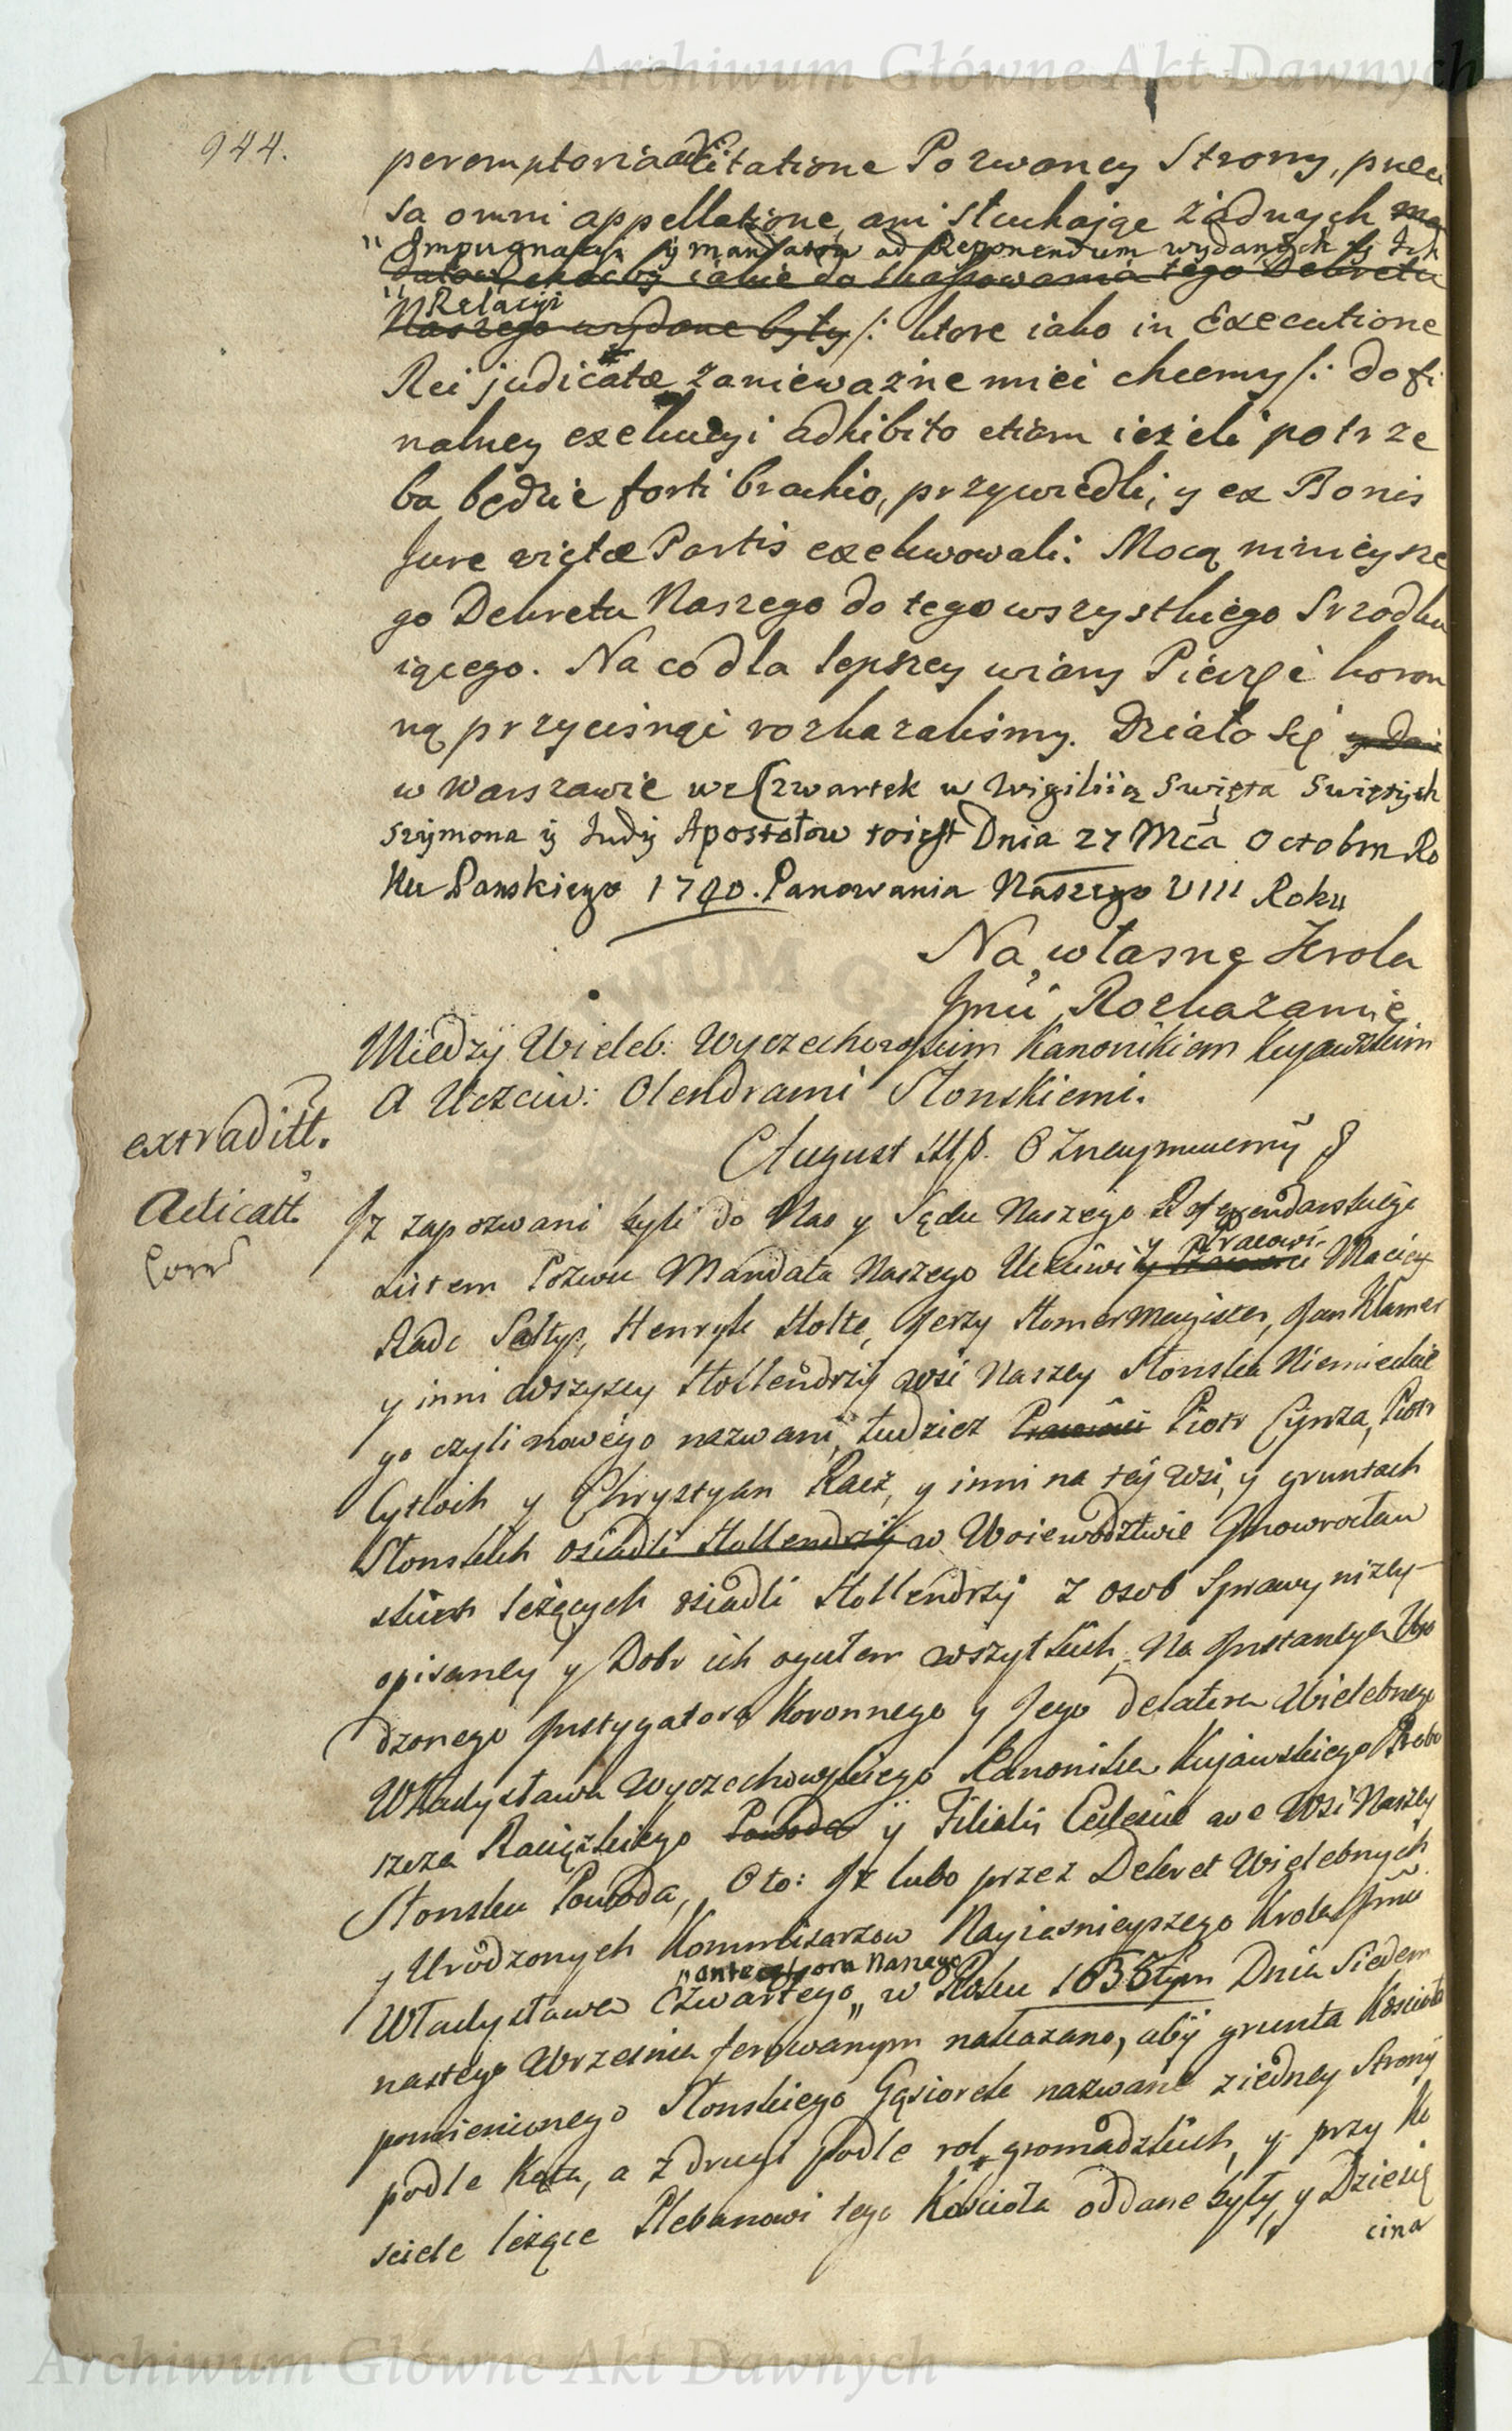 Archiwum Główne Akt Dawnych
944.
peremptoria ad citatione Pozwaney Strony, preci
sa omni appellatione, ani słuchaiąc żadnych ma
" Impugnacyi y mandatow ad Reponendum wydanych y Ich
datow choćby iakie do skassowania tego Dekretu
" Relacyi
Naszego wydane były /: ktore iako in Executione
Rei judicatæ zanieważne mieć chcemy /: do fi
nalney exekucyi adhibito etiam ieżeli potrze
ba będzie forti brachio, przywiedli, y ex Bonis
Jure victæ Partis exekwowali. Mocą ninieysze
go Dekretu Naszego do tego wszystkiego Srzodku
iącego. Na co dla lepszey wiary Pieczęć koron
ną przycisnąć rozkazalismy. Działo się y dan
w Warszawie we Czwartek w Wigiliią Swięta Swiętych
Szymona y Judy Apostołow to iest Dnia 27 Mca Octobra Ro
ku Panskiego 1740. Panowania Naszego VIII Roku
Na własne Krola
Jmci Rozkazanie
Miedzy Wieleb: Wyczechowskim Kanonikiem kujawskim
A Uczciw: Olendrami Słonskiemi.
extraditt.
August IIIci. Oznaymuiemy
Acticatt.
Iz zapozwani byli do Nas y Sądu Naszego Referendarskiego
Corr
Listem Pozwu Mandatu Naszego Uczciwi y Pracowi Maciey
y Pracowi
Rade Sołtys, Henryk Holte, Jerzy Homer magister, Jan Klamer
y inni wszyscy Hollendrzy wsi Naszey Słonska Niemieckie
go czyli nowego nazwani, tudziez Pracowi Piotr Cynza, Piotr
Cytloih y Chrystyan Racz, y inni na tey wsi, y gruntach
Słonskich osiadli Hollendrzy w Woiewodztwie Jnowrocław
skim leżących osiadli Hollendrzy z osob Sprawy nizey
opisaney y Dobr ich ogułem wszytkich, Na Jnstancyą Uro
dzonego Jnstygatora Koronnego y Jego delatora Wielebnego
Władysława Wyczechowskiego Kanonika Kujawskiego Probo
szcza Raciązkiego Powoda y Filialis Ecclesiæ we Wsi Naszey
Słonsku Powoda, Oto: Iz lubo przez Dekret Wielebnych
y Urodzonych Kommissarzow Nayiasnieyszego Krola Jmci
" antecessora Naszego
Władysława Czwartego " w Roku 1635tym Dnia Siedem
nastego Wrzesnia ferowanym nakazano, aby grunta Koscioła
pomienionego Słonskiego Gąsiorek nazwane z iedney Strony
podle Kąta, a z drugi podle rol gromadzkich, y przy Ko
sciele leżące Plebanowi tego Kosciola oddane były, y Dziesię
cina
Archiwum Główne Akt Dawnych